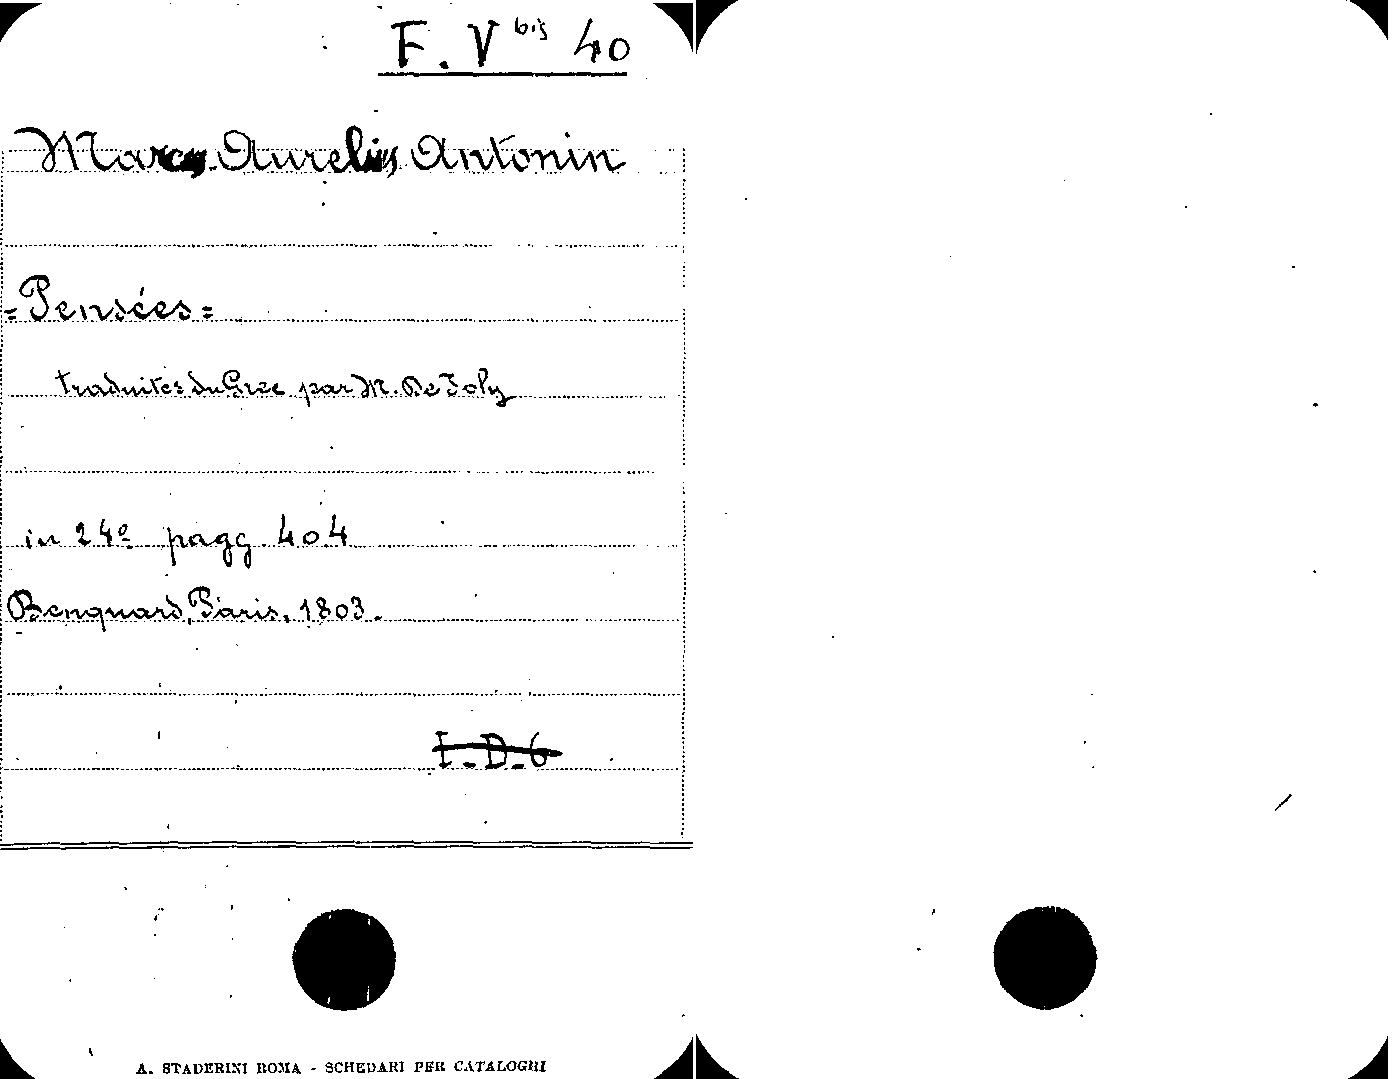 F. V bis 40
Marcus Aurelius Antonin
=Pensées=
traduites du Grec par M. De Joly
in 24º pagg 404
Benquard, Paris, 1803.
I-D-6
A. STADERINI ROMA - SCHEDARI PER CATALOGHI